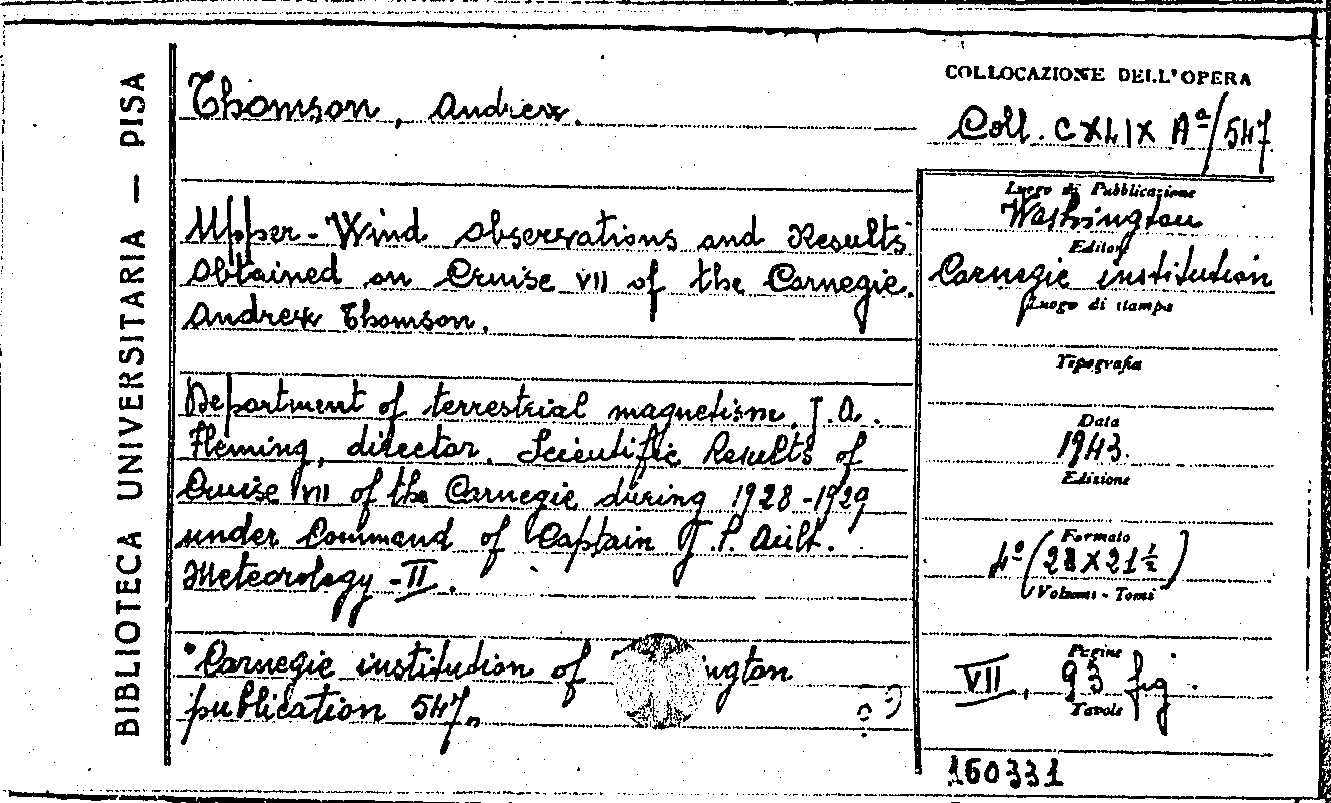 BIBLIOTECA UNIVERSITARIA — PISA
Thomson, Andrew.
Upper-Wind Observations and Results
obtained on Cruise VII of the Carnegie.
Andrew Thomson.
Department of terrestrial magnetism, J.A.
Fleming, director. Scientific Results of
Cruise VII of the Carnegie during 1928-1929
under Command of Captain J.P. Ault.
Meteorology - II.
"Carnegie institution of
publication 547"
COLLOCAZIONE DELL'OPERA
Coll. CXLIX Aª/547
Luogo di Pubblicazione
Washington
Editore
Carnegie institution
Luogo di stampa
Tipografia
Data
1943.
Edizione
Formato
4º (28 X 21 ½)
Volumi - Tomi
Pagine
VII, 93 fig.
Tavole
160331